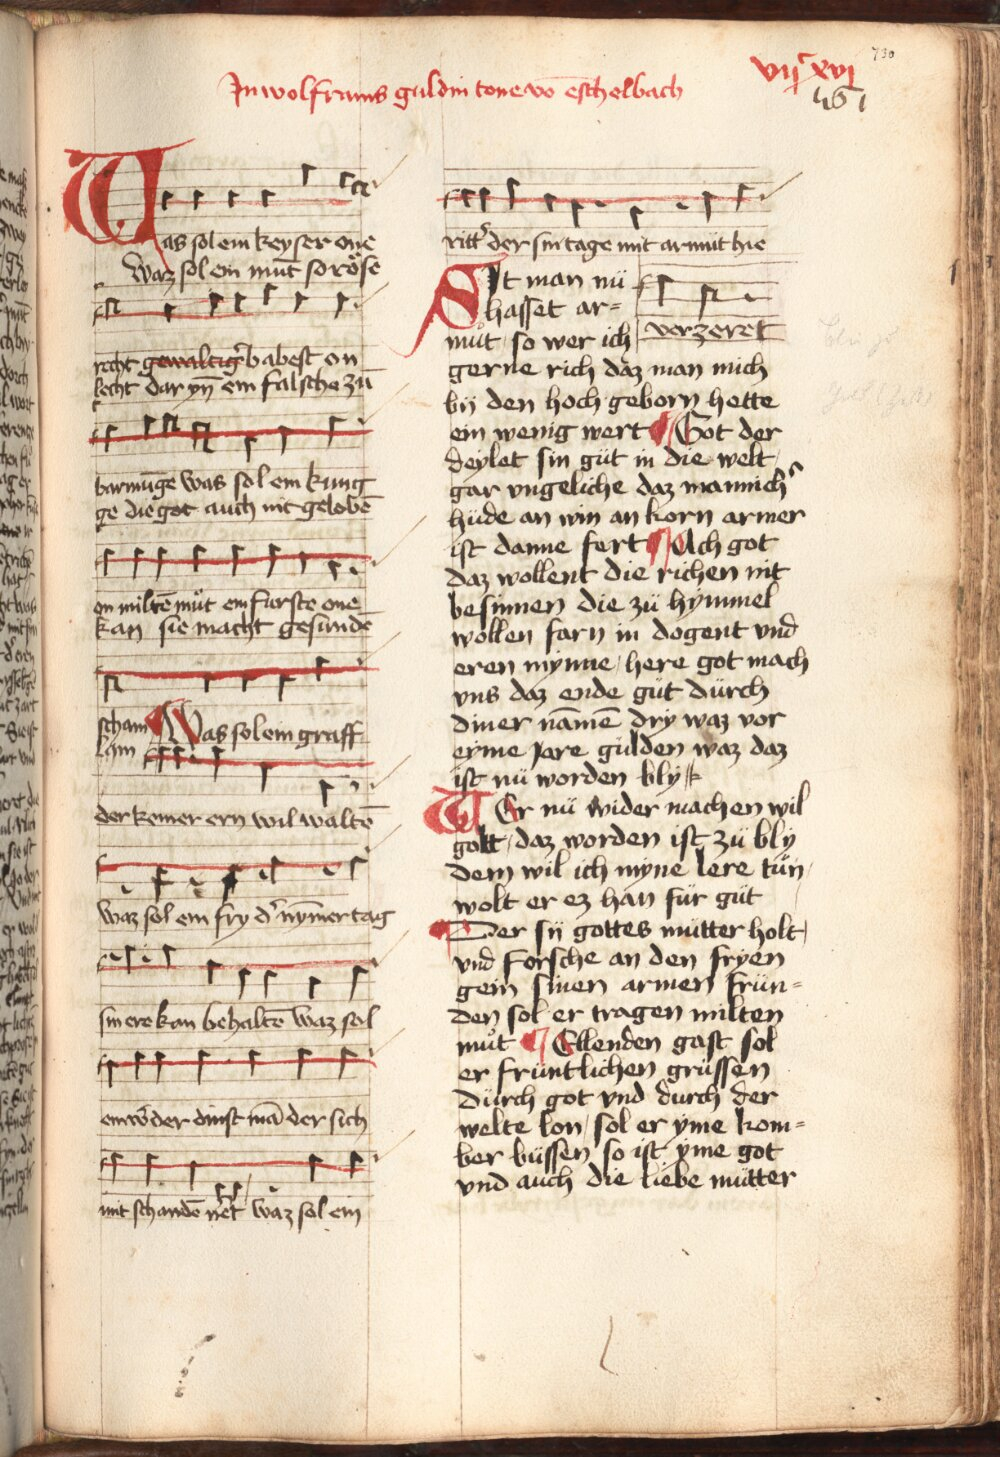 730
vij^c xvj
461
In wolframs guldin tone vō eschelbach
Was sol ein keyser one
Waz sol ein mūt so röse
recht gewaltig² babest on
lecht dar yn̄ ein falsche zū
barmūge was sol ein kung
ge die got auch nit gelobē
on miltē muͦt ein furste one
kan sie macht gesunde
scham Was sol ein graff
lam
der kemer ern wil waltē
waz sol ein fry d² nymer tag
sin ere kan behaltē waz sol
ein w der dinst mā der sich
mit schandē waz sol ein
ritt² der sin tage mit armut hie
verzeret
SIt man nü
hasset ar=
muͦt so wer ich
gerne rich daz man mich
bij den hoch geborn hette
ein wenig wert Got der
deylet sin güt in die welt
gar vngeliche daz mannich²
hüde an win an korn armer
ist danne fert Ach got
daz wollent die richen nit
besinnen die zü hymmel
wollen farn in dogent vnd
eren mynne / here got mach
vns daz ende güt dürch
diner nāmē dry waz vor
eyme jare gulden waz daz
ist nü worden bly
WEr nü wider machen wil
golt / daz worden ist zü bly
dem wil ich myne lere tün
wolt er ez han für güt
Der sij gottes mütter holt
vnd forsche an den fryen
gein sinen armen frün=
den sol er tragen milten
muͦt Ellenden gast sol
er früntlichen grüssen
Dürch got vnd durch der
welte lon / sol er yme kom=
ber büssen so ist yme got
vnd auch die liebe mütter